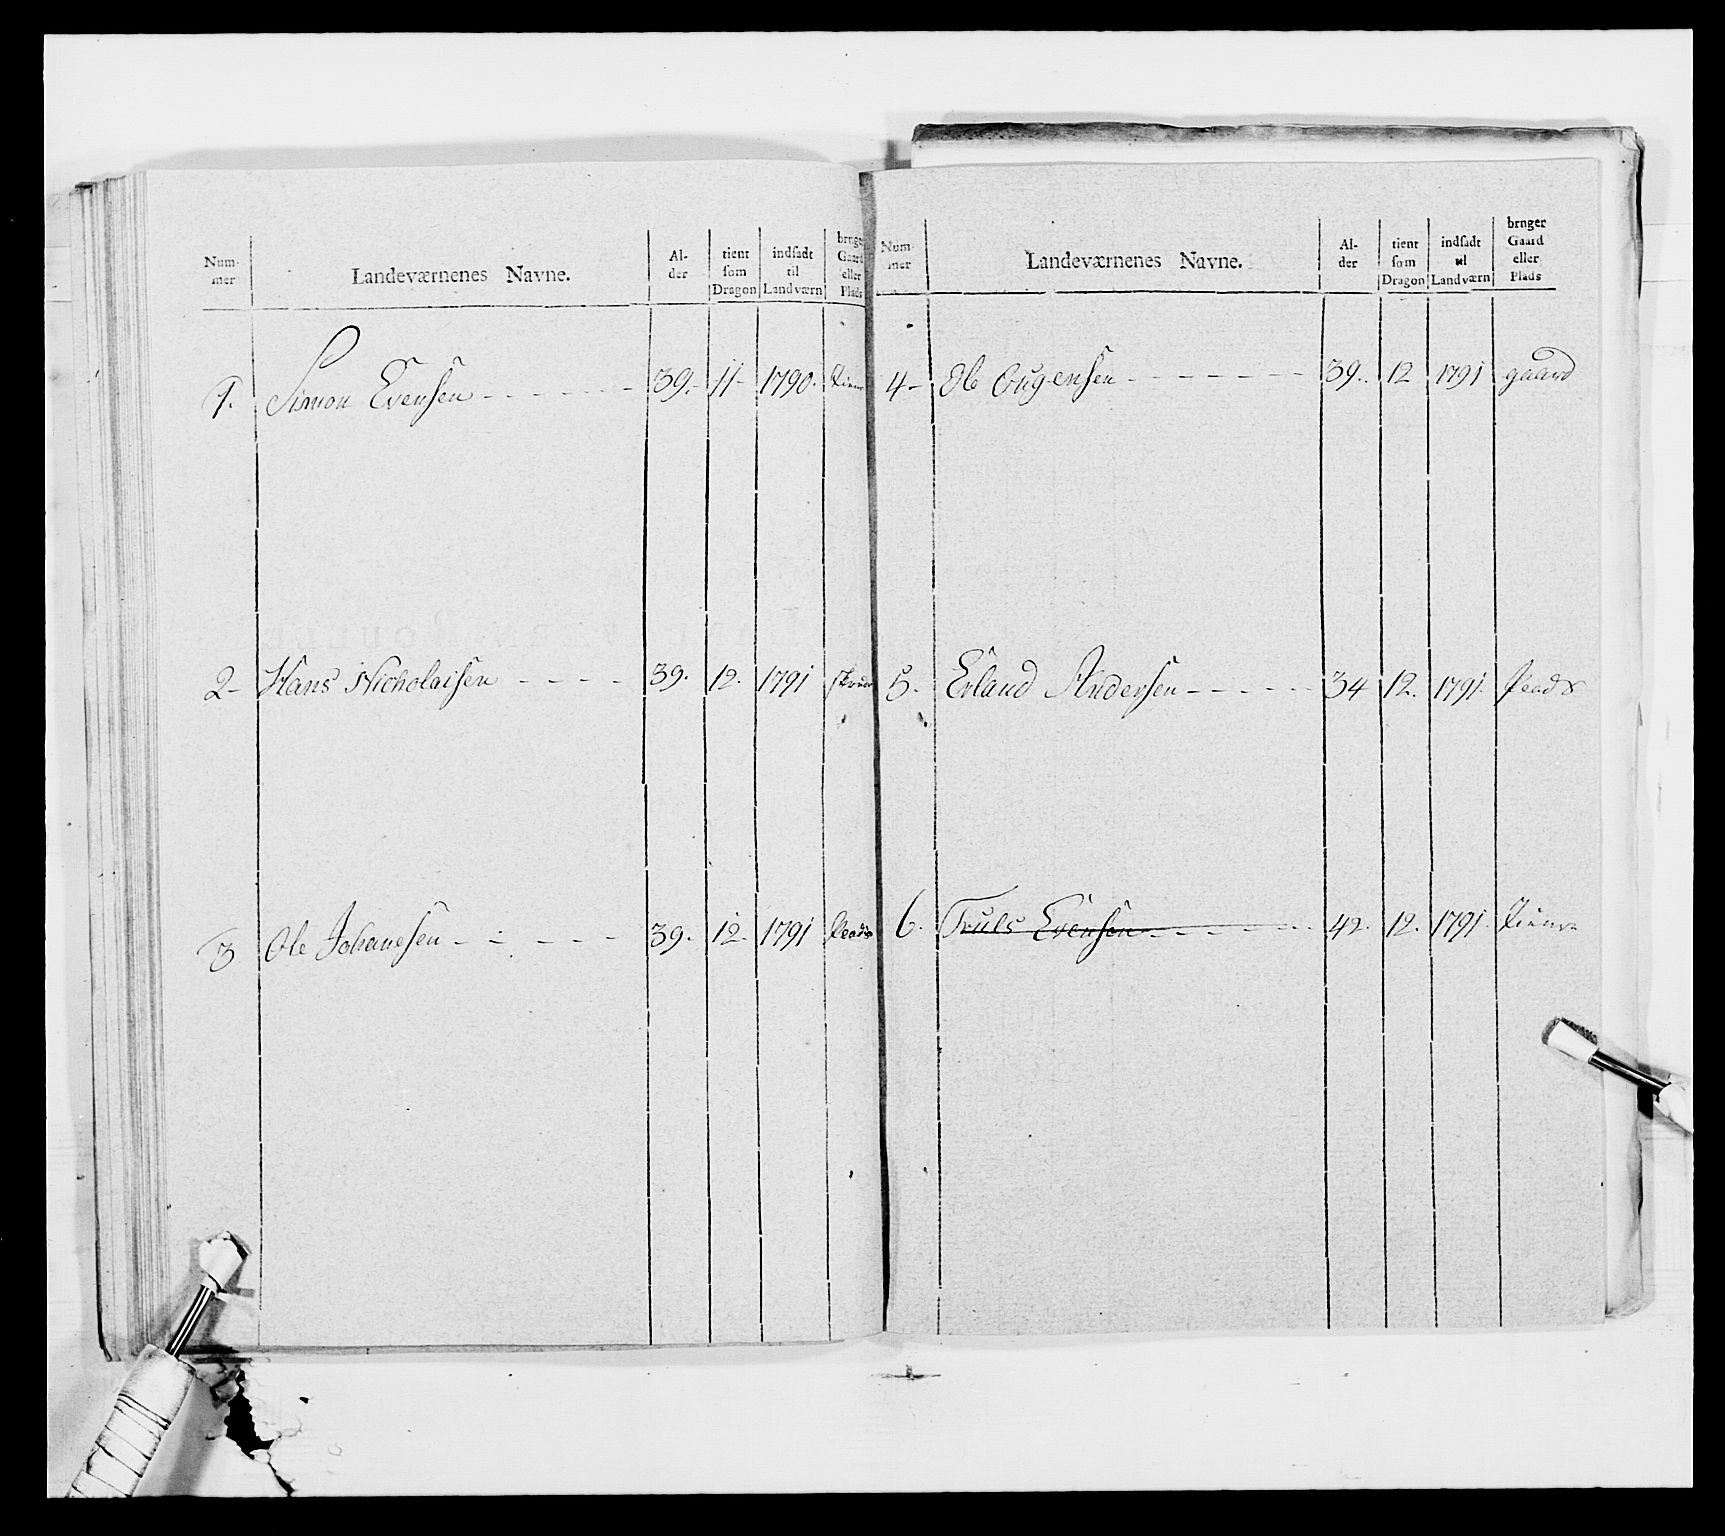 Num-mer Landeværnenes Navne. Al-der tient som Dragon indsadt til Landværn bruger Gaard eller Plads
1. Simon Evensen 39. 11 1790.
2 Hans Nicholaisen 39. 12. 1791
3 Ole Johanesen 39. 12. 1791 Plads
Num-mer Landeværnenes Navne. Al-der tient som Dragon indsadt til Landværn bruger Gaard eller Plads
4 Ole 39. 12 1791 gaard
5. Erland Andersen 34 12. 1791. Plads
6. Truls Evensen 42. 12. 1791.